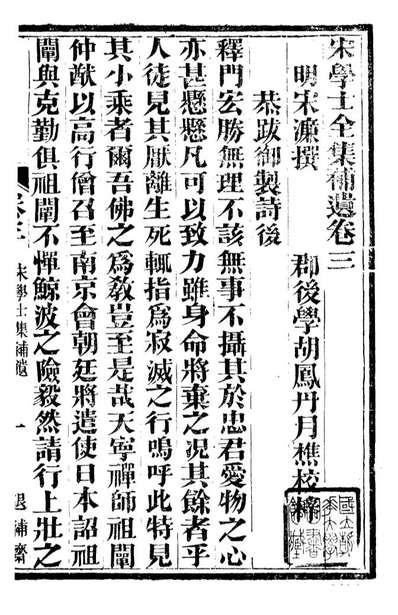 宋學士全集補遺卷三
明宋濂撰 郡後學胡鳳丹月樵校
恭跋御製詩後
釋門宏勝無理不該無事不攝其於忠君愛物之心
亦甚懸懸凡可以致力雖身命將棄之況其餘者乎
人徒見其厭離生死輒指為寂滅之行嗚呼此特見
其小乘者爾吾佛之為敎豈至是哉天寧禪師祖闡
仲猷以高行僧召至南京會朝廷將遣使日本詔祖
闡與克勤俱祖闡不憚鯨波之險毅然請行上壯之
宋學士集補遺
一
退補齋